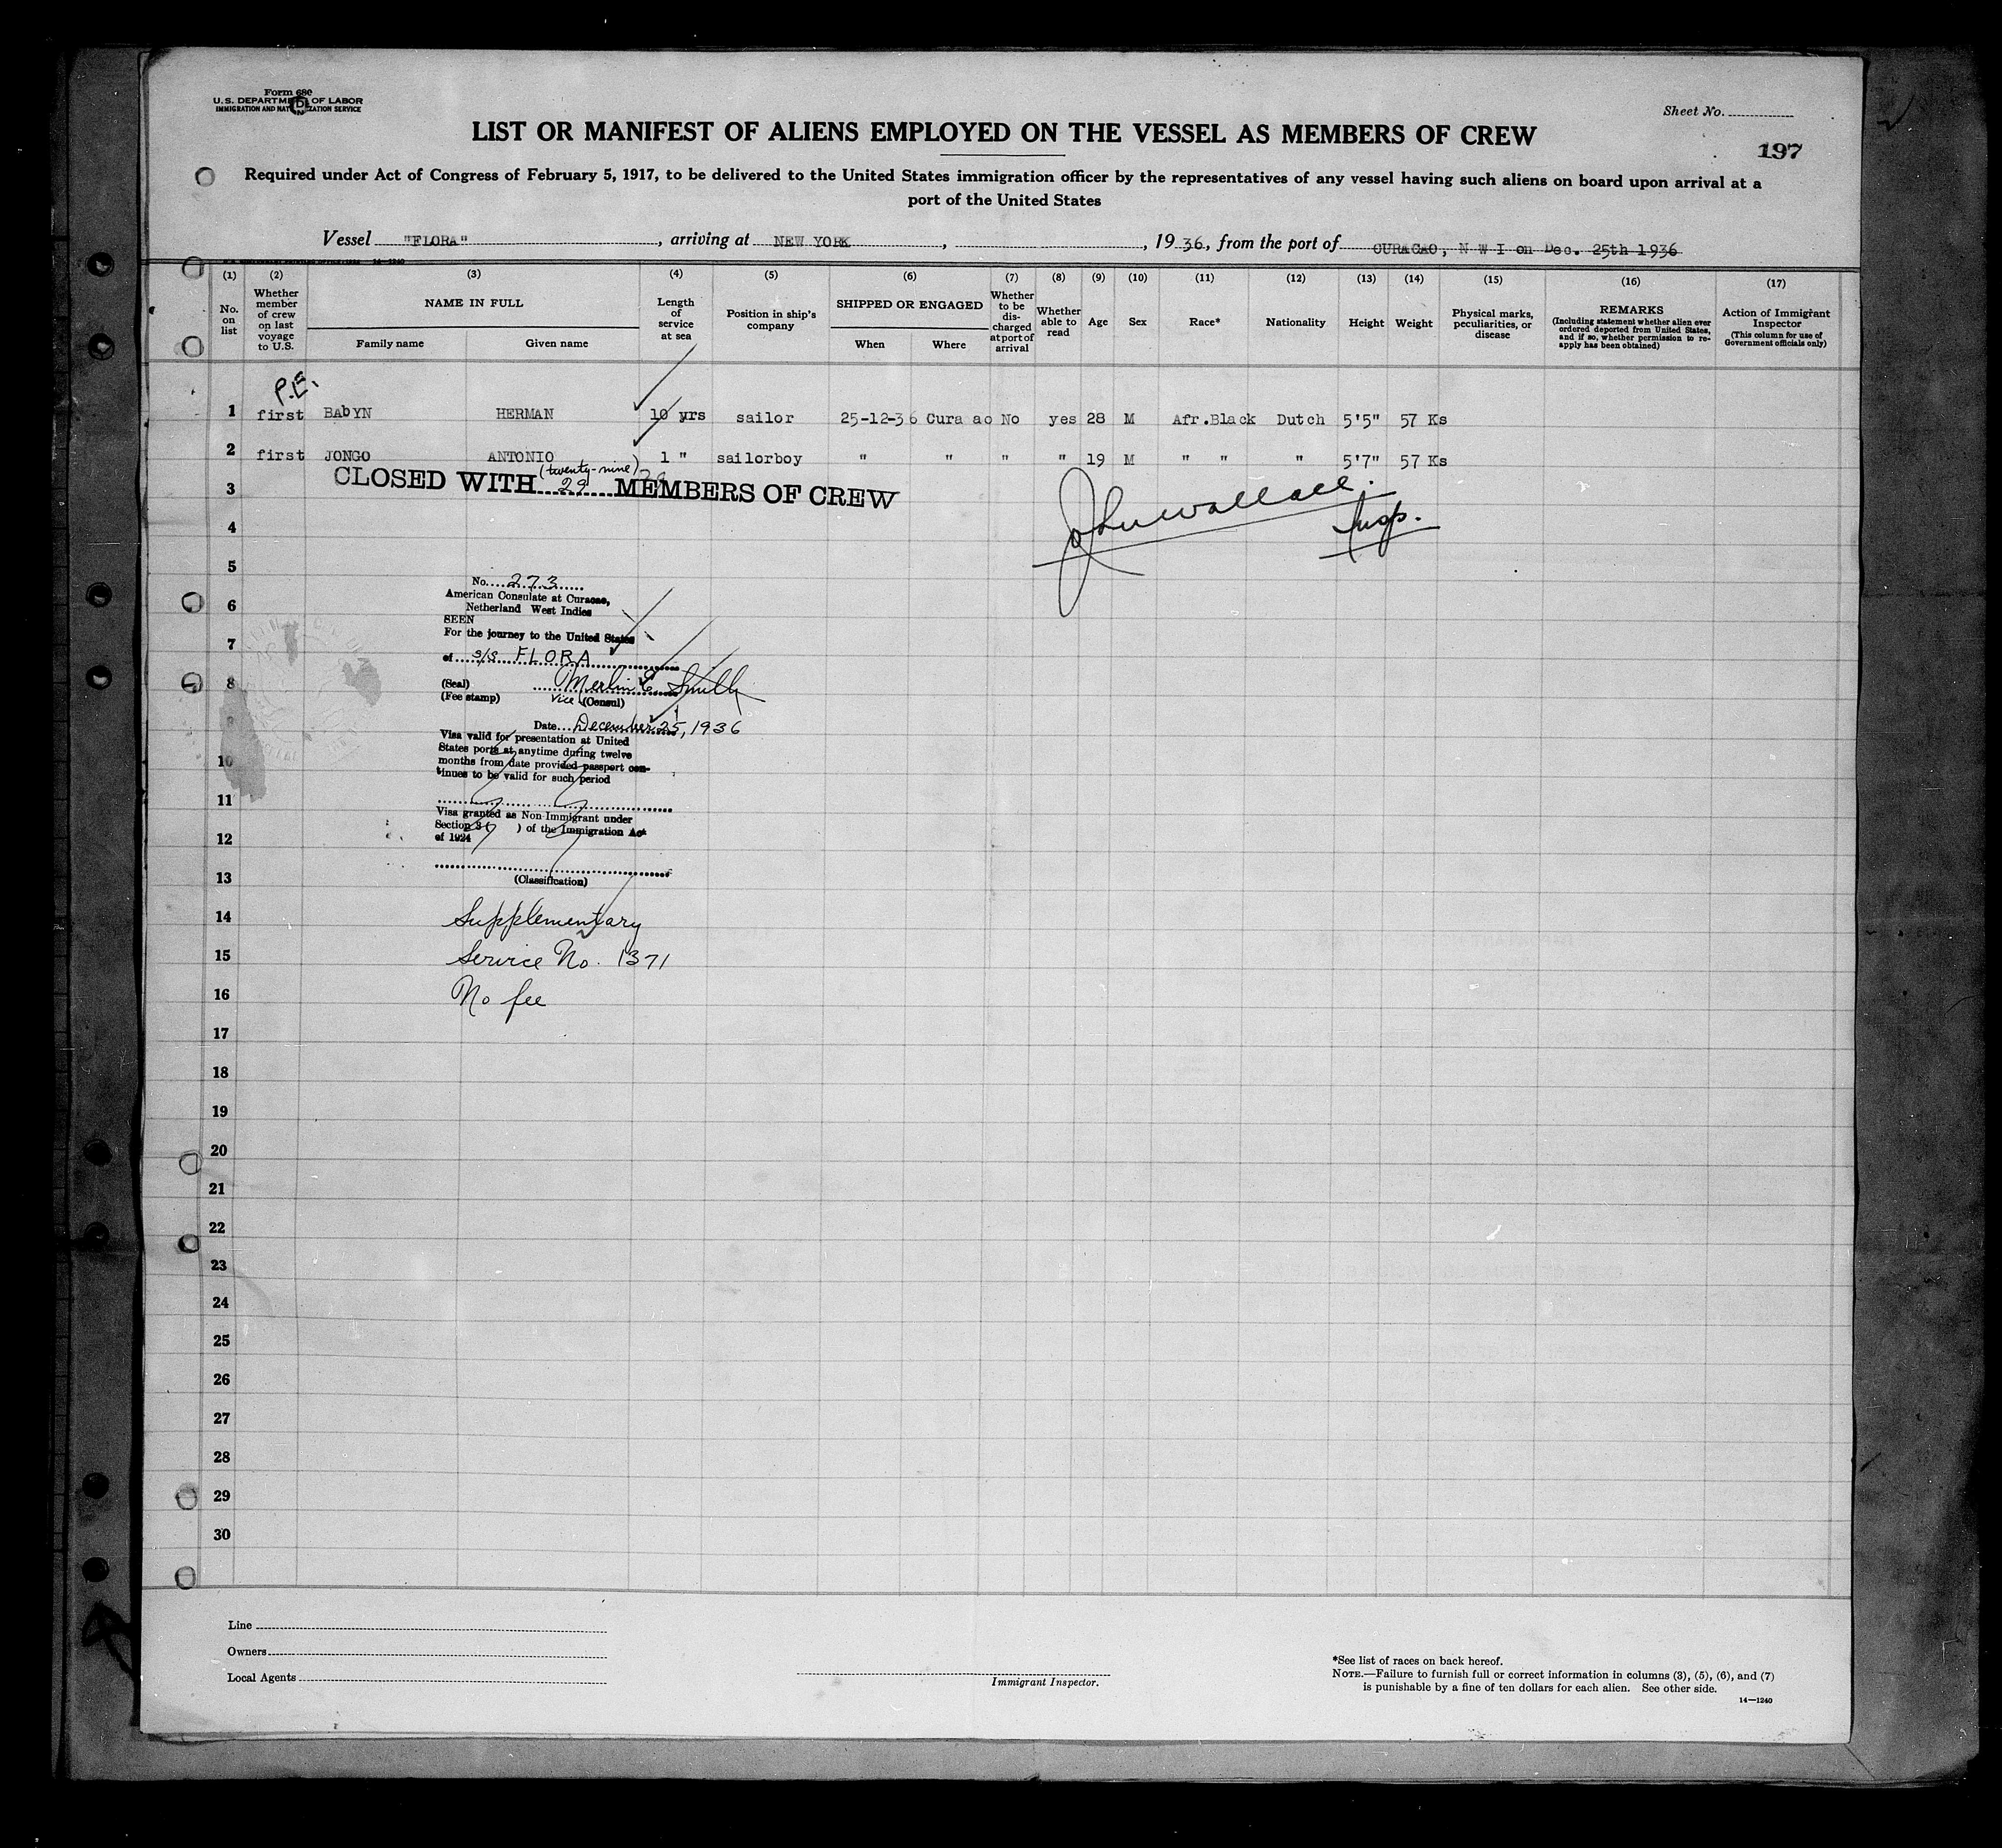 Form 680
U. S. DEPARTMENT OF LABOR
IMMIGRATION AND NATURALIZATION SERVICE
Sheet No.
LIST OR MANIFEST OF ALIENS EMPLOYED ON THE VESSEL AS MEMBERS OF CREW
197
Required under Act of Congress of February 5, 1917, to be delivered to the United States immigration officer by the representatives of any vessel having such aliens on board upon arrival at a
port of the United States
Vessel "FLORA", arriving at NEW YORK, , 1936, from the port of CURACAO, N W I on Dec. 25th 1936
(1) (2) (3) (4) (5) (6) (7) (8) (9) (10) (11) (12) (13) (14) (15) (16) (17)
No. on list
Whether member of crew on last voyage to U.S.
NAME IN FULL
Family name Given name
Length of service at sea
Position in ship's company
SHIPPED OR ENGAGED
When Where
Whether to be discharged at port of arrival
Whether able to read
Age
Sex
Race*
Nationality
Height
Weight
Physical marks, peculiarities, or disease
REMARKS
(Including statement whether alien ever ordered deported from United States, and if so, whether permission to re-apply has been obtained)
Action of Immigrant Inspector
(This column for use of Government officials only)
P.E.
1 first BAbYN HERMAN 10 yrs sailor 25-12-36 Cura ao No yes 28 M Afr.Black Dutch 5'5" 57 Ks
2 first JONGO ANTONIO 1 " sailorboy " " " " 19 M " " " 5'7" 57 Ks
(twenty-nine)
CLOSED WITH 29 MEMBERS OF CREW
John Wallace.
Insp.
3
4
5
No. 273
American Consulate at Curacao,
6
Netherland West Indies
SEEN
For the journey to the United States
7
of s/s FLORA
8
(Seal) Merlin E. Smith
(Fee stamp) Vice (Consul)
9
Date December 25, 1936
Visa valid for presentation at United
States ports at anytime during twelve
10
months from date provided passport con-
tinues to be valid for such period
11
Visa granted as Non-Immigrant under
Section 3( ) of the Immigration Act
12
of 1924
13
(Classification)
14 Supplementary
15 Service No. 1371
16 No fee
17
18
19
20
21
22
23
24
25
26
27
28
29
30
Line
Owners
Local Agents
Immigrant Inspector.
*See list of races on back hereof.
NOTE.—Failure to furnish full or correct information in columns (3), (5), (6), and (7)
is punishable by a fine of ten dollars for each alien. See other side.
14—1240